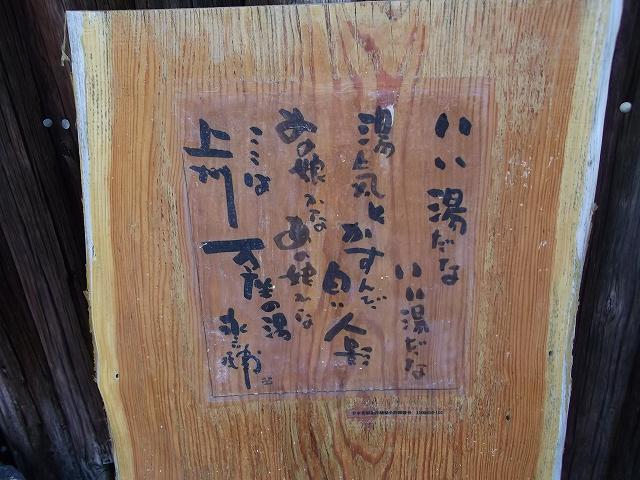 いい湯だな
いい湯だな
湯気にかすんだ
白い人影
あの娘かな
あの娘かな
ここは
上州
の湯